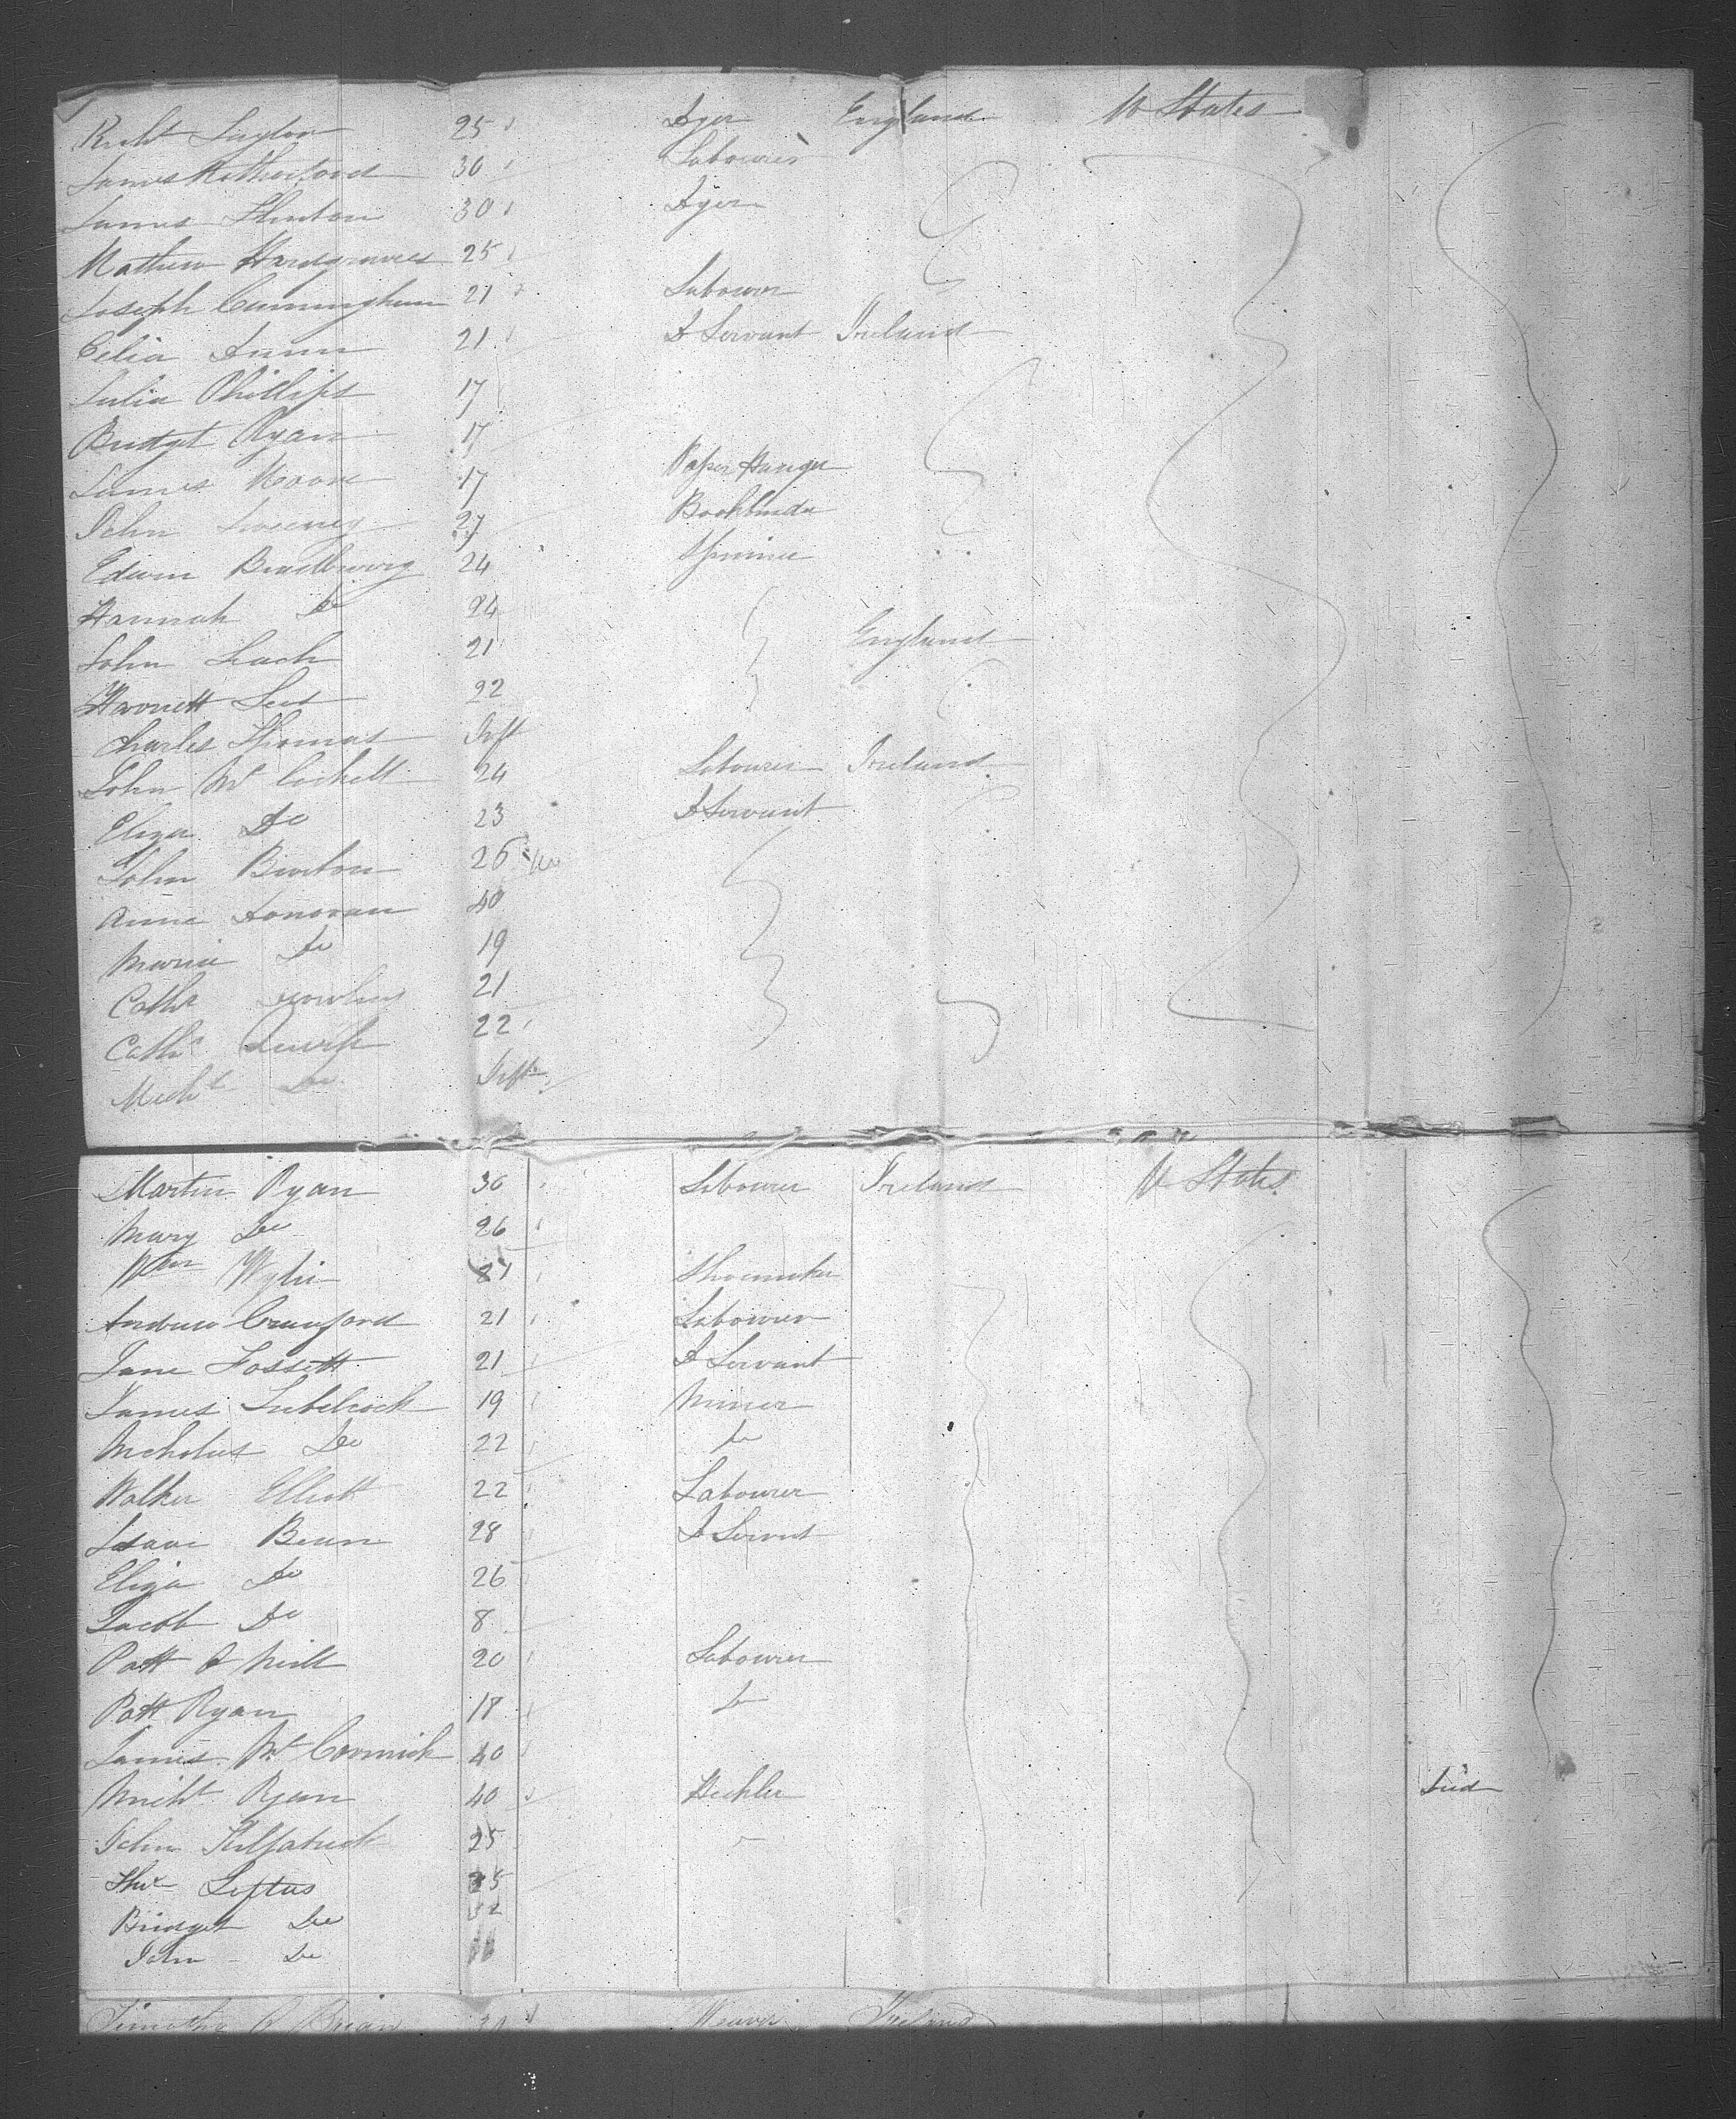 Richt Taylor 25 Dyer England U States
James Rutherford 30 Labourer
James Shenton 30 Dyer
Mathew Hardgraves 25
Joseph Cunningham 21 Labourer
Celia Dunn 21 D Servant Ireland
Julia Phillips 17
Bridget Ryan 17
James Moore 17 Paper Hanger
John Sweeney 27 Bookbinder
Edwin Bradbury 24 Spinner
Hannah Do 24
John Leach 21 England
Harriett Lees 22
Charles Thomas Inft
John Mc Corkell 24 Labourer Ireland
Eliza Do 23 D Servant
John Burton 25
Anne Donovan 40
Maria Do 19
Cathe Dowling 21
Cathe 22
Michl Do Inft
Martin Ryan 30 Labourer Ireland U States
Mary Do 26
Wm Wylie Shoemaker
Andrew Crawford 21 Labourer
Jane Fossett 21 D Servant
James 19 Miner
Nicholas Do 22 Do
Walter Elliott 22 Labourer
Isaac Bean 28 D Servt
Eliza Do 26
Jacob Do 8
Patt O Neill 20 Labourer
Patt Ryan 18 Do
James Mc Cormick 40
Micht Ryan 40 Heckler Died
John Kilpatrick 25
Loftus
Bridget Do
John Do
Timothy O Brian 30 Weaver Ireland